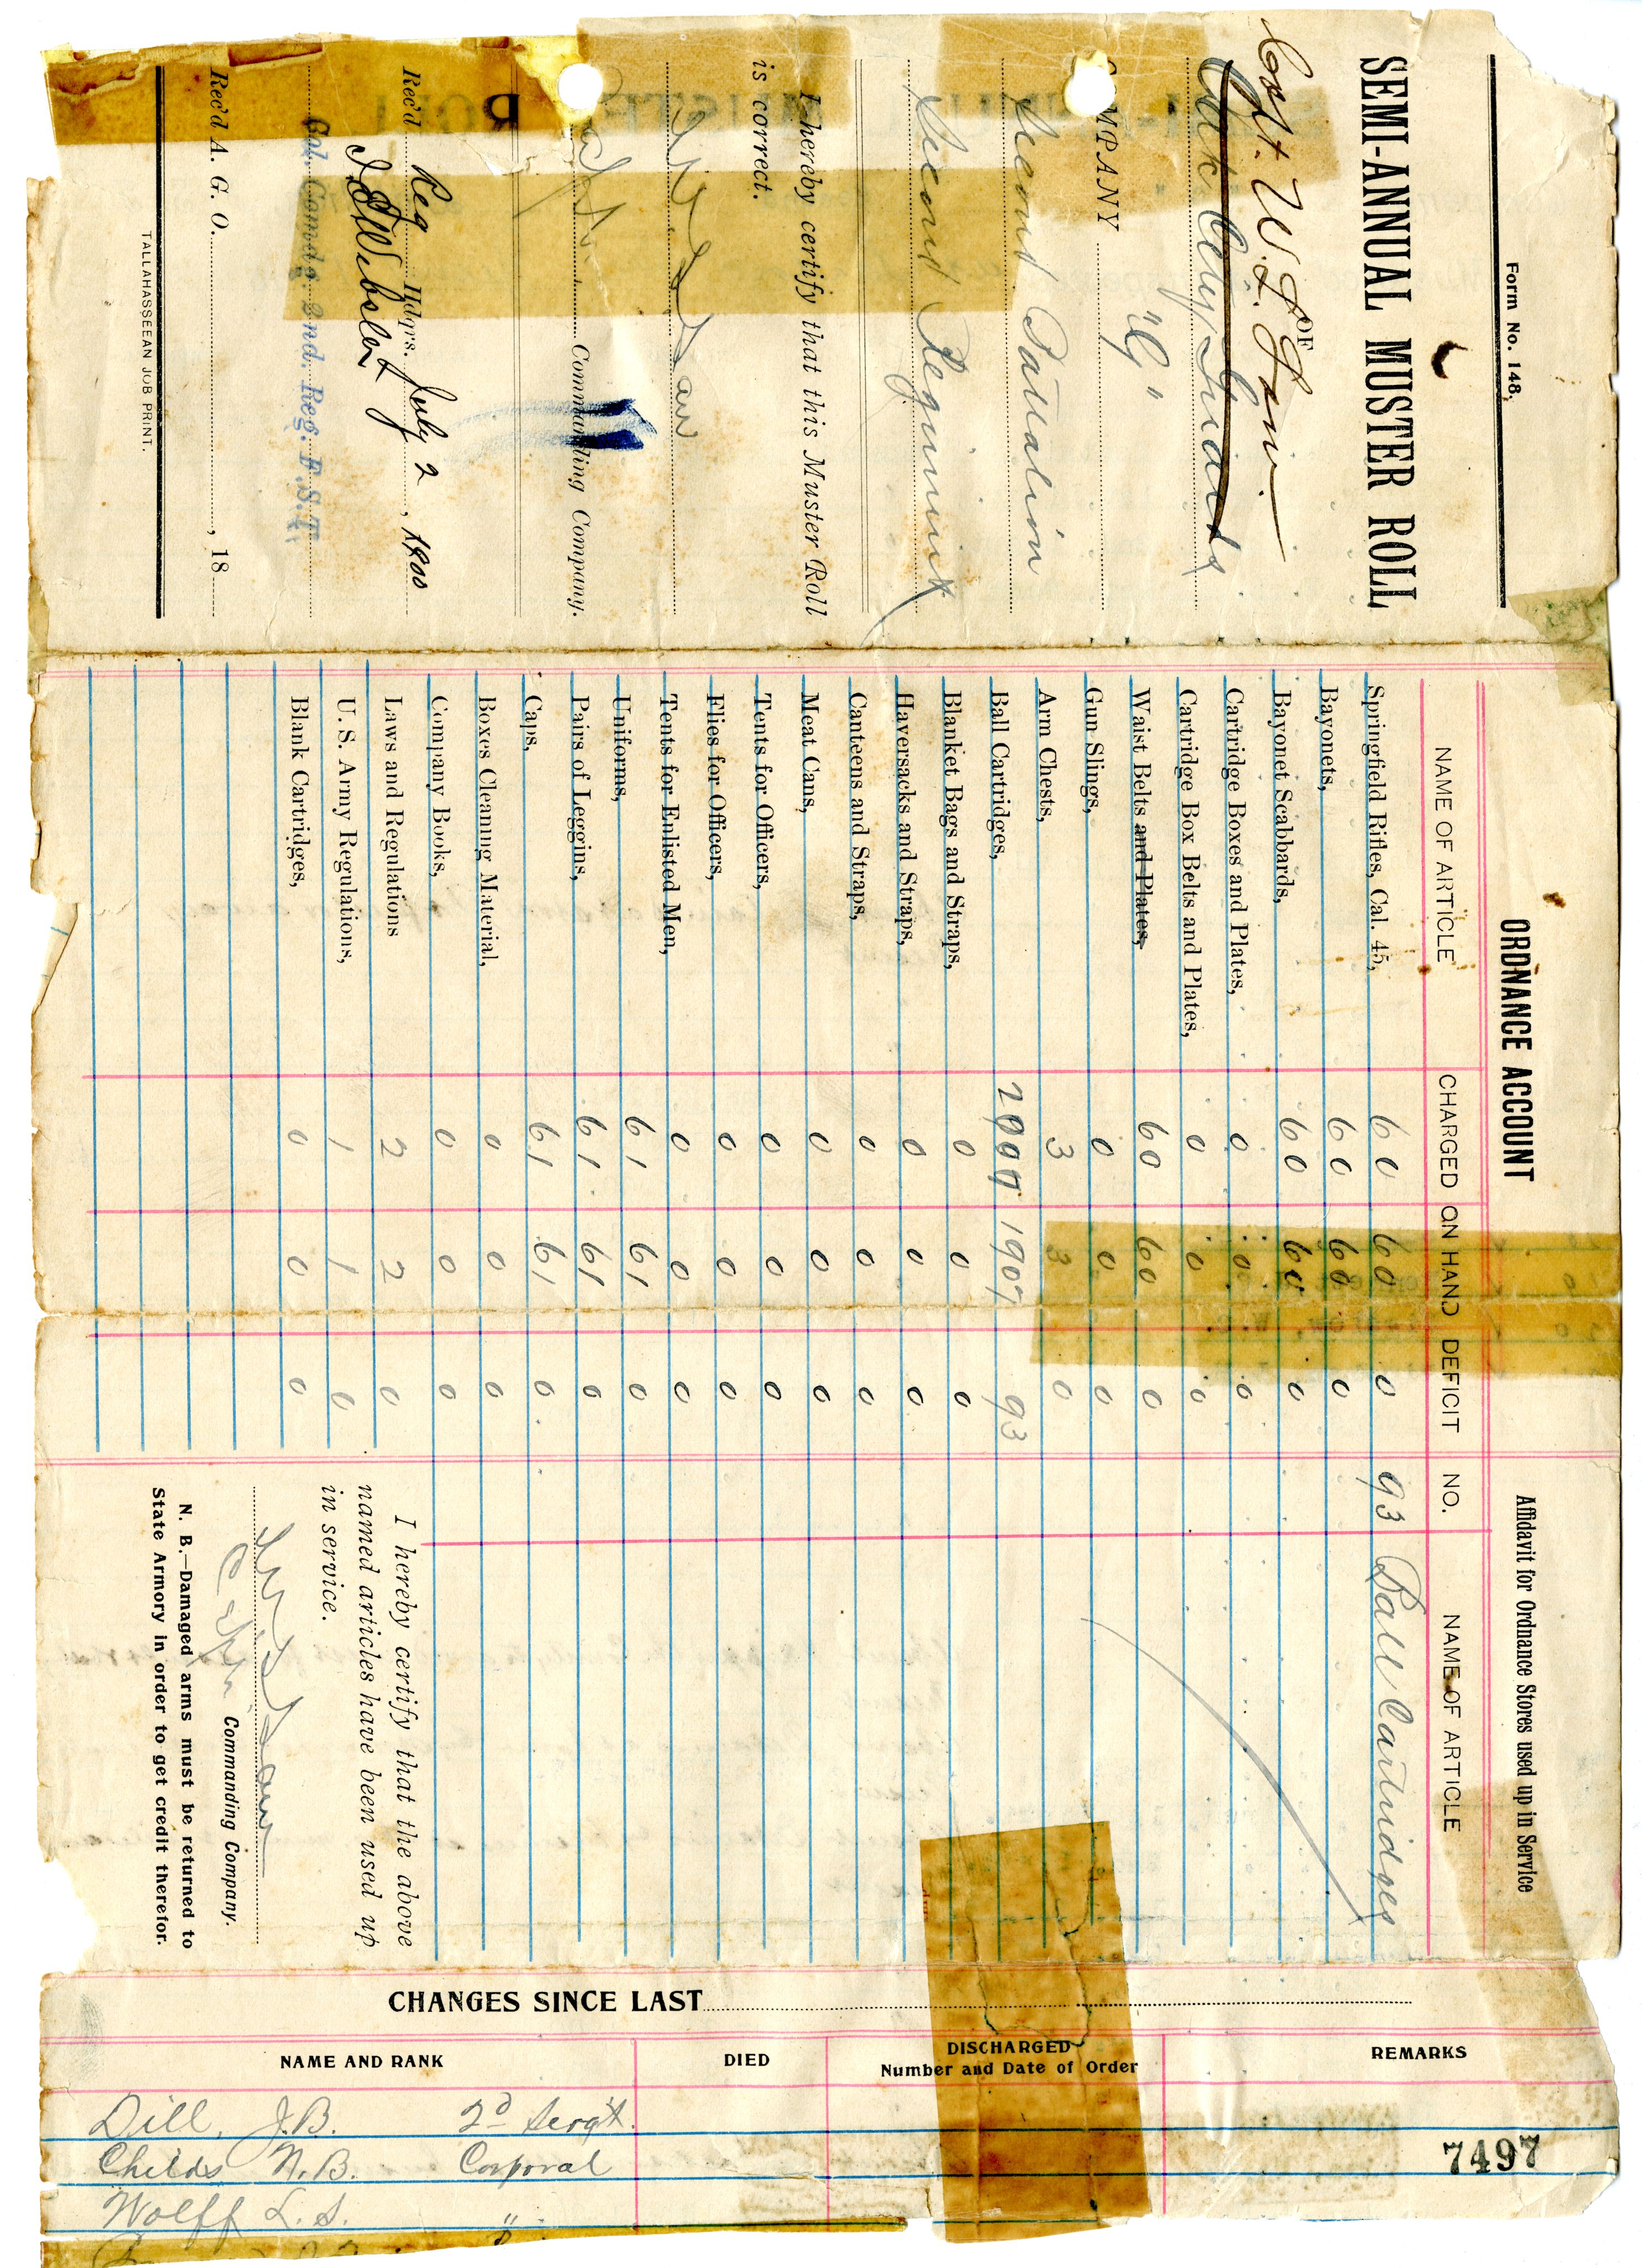 Form No. 148.
SEMI-ANNUAL MUSTER ROLL
OF
Capt. W. L.
Oak City Guards
COMPANY "G"
Second Battalion
Second Regiment
I hereby certify that this Muster Roll
is correct.
Capt. Commanding Company.
Rec'd Reg Hdqrs. July 2, 1900
Col. Comdg. 2nd. Reg. F.S.T.
Rec'd A. G. O. , 18
TALLAHASSEEAN JOB PRINT.
ORDNANCE ACCOUNT
NAME OF ARTICLE CHARGED ON HAND DEFICIT
Springfield Rifles, Cal. 45, 60 60 0
Bayonets, 60 60 0
Bayonet Scabbards, 60 60 0
Cartridge Boxes and Plates, 0 0 0
Cartridge Box Belts and Plates, 0 0 0
Waist Belts and Plates, 60 60 0
Gun Slings, 0 0 0
Arm Chests, 3 3 0
Ball Cartridges, 2000 1907 93
Blanket Bags and Straps, 0 0 0
Haversacks and Straps, 0 0 0
Canteens and Straps, 0 0 0
Meat Cans, 0 0 0
Tents for Officers, 0 0 0
Flies for Officers, 0 0 0
Tents for Enlisted Men, 0 0 0
Uniforms, 61 61 0
Pairs of Leggins, 61 61 0
Caps, 61 61 0
Boxes Cleaning Material, 0 0 0
Company Books, 0 0 0
Laws and Regulations 2 2 0
U. S. Army Regulations, 1 1 0
Blank Cartridges, 0 0 0
Affidavit for Ordnance Stores used up in Service
NO. NAME OF ARTICLE
93 Ball Cartridges
I hereby certify that the above
named articles have been used up
in service.
Capt. Commanding Company.
N. B.—Damaged arms must be returned to
State Armory in order to get credit therefor.
CHANGES SINCE LAST
NAME AND RANK DIED DISCHARGED Number and Date of Order REMARKS
Dill, J.B. 2d Sergt.
Childs N.B. Corporal
Wolff L. S. "
7497